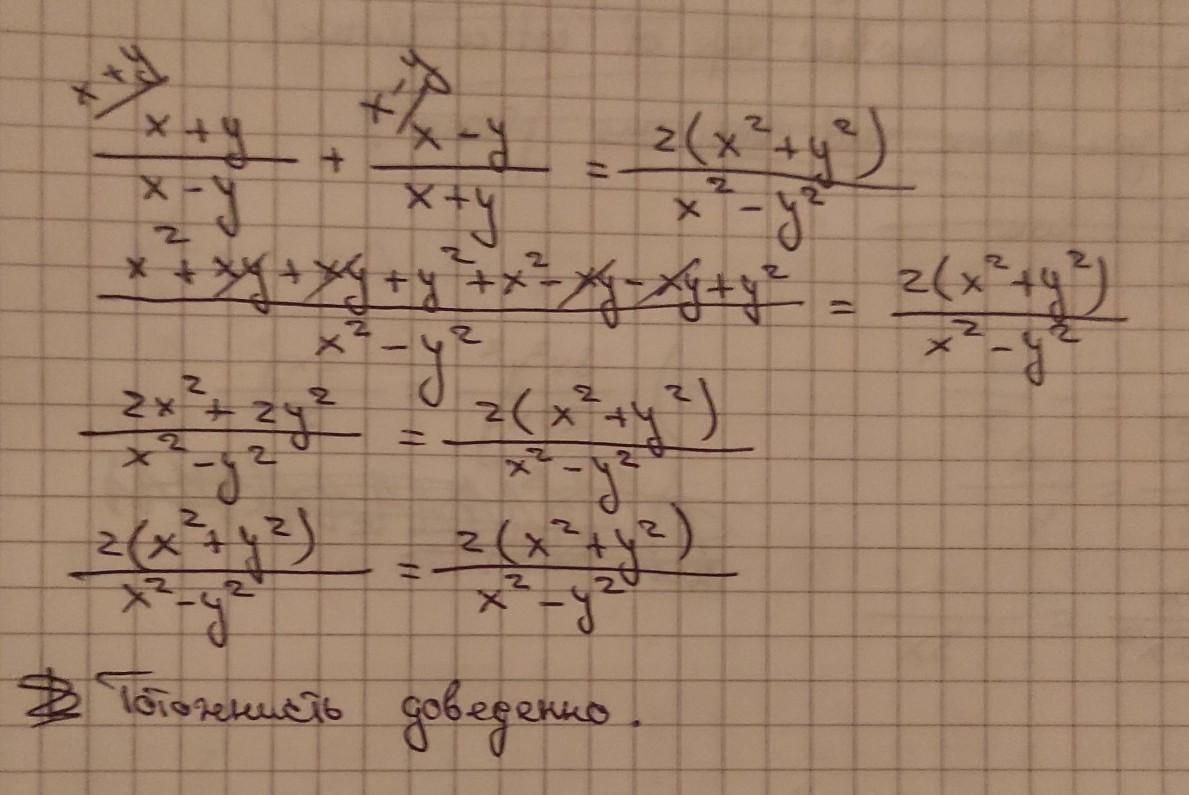 x+y x-y
(x+y)/(x-y) + (x-y)/(x+y) = 2(x²+y²)/(x²-y²)
(x²+xy+xy+y²+x²-xy-xy+y²)/(x²-y²) = 2(x²+y²)/(x²-y²)
(2x²+2y²)/(x²-y²) = 2(x²+y²)/(x²-y²)
2(x²+y²)/(x²-y²) = 2(x²+y²)/(x²-y²)
Тотожнисть доведенно.